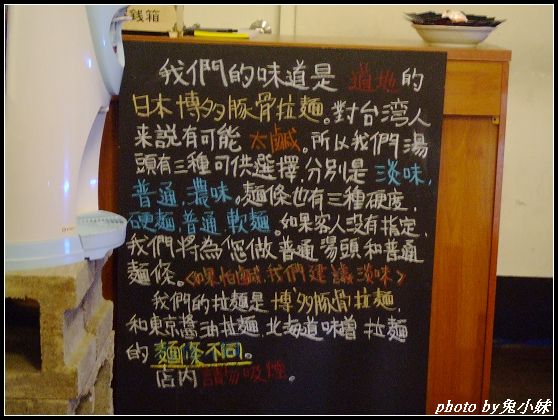 錢箱
我們的味道是 道地的
日本博多豚骨拉麵。對台灣人
来說有可能 太鹹。所以我們湯
頭有三種可供選擇.分別是 淡味.
普通.濃味。麵條也有三種硬度.
硬麵.普通.軟麵。如果客人沒有指定.
我們將為您做普通湯頭和普通
麵條。<如果怕鹹.我們建議淡味>
我們的拉麵是 博多豚骨拉麵
和東京醬油拉麵.北海道味噌 拉麵
的 麵條不同。
店内 請勿吸煙。
photo by 兔小妹